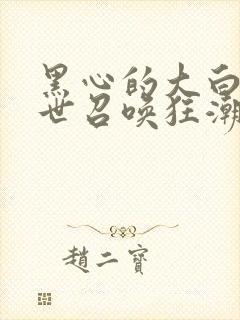 黑心的大白
世召唤狂潮
趙二寶